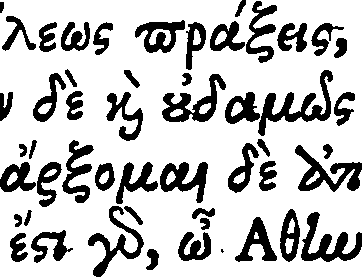 λεως πράξεις,
δὲ ϗ̀ οὐδαμῶς
ἄρξομαι δὲ ἀπ
ἔστι γὰρ, ὦ Ἀθην